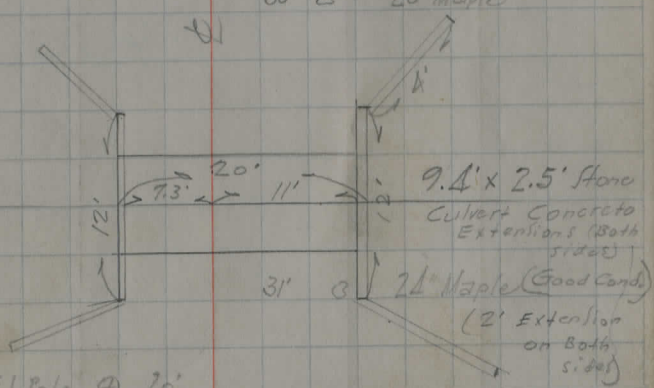 20" Maple
℄
4'
20'
7.3' 11'
12'
12'
9.4' x 2.5' Stone
Culvert Concrete
Extensions (Both
sides)
31' 24" Maple (Good Cond.)
(2' Extension
on Both
sides)